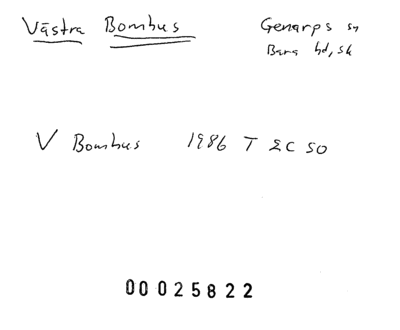 Västra Bombus
Genarps sn
Bara hd, sk
V Bombus 1986 T ΣC SO
00025822